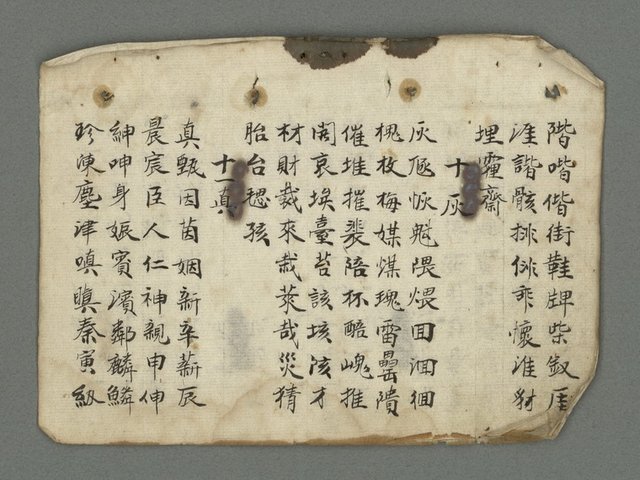 階喈偕街鞋牌柴釵厓
涯諧骸排俳乖懷淮豺
埋霾齋
十灰
灰恢魁隈煨回洄徊
槐枚梅媒煤瑰雷罍隤
催堆摧裴陪杯醅嵬推
開哀埃臺苔該垓陔才
材財裁來栽萊哉災猜
胎台孩
十一真
真甄因茵姻新辛薪辰
晨宸臣人仁神親申伸
紳呻身娠賓濱鄰麟鱗
珍陳塵津嗔瞋秦寅